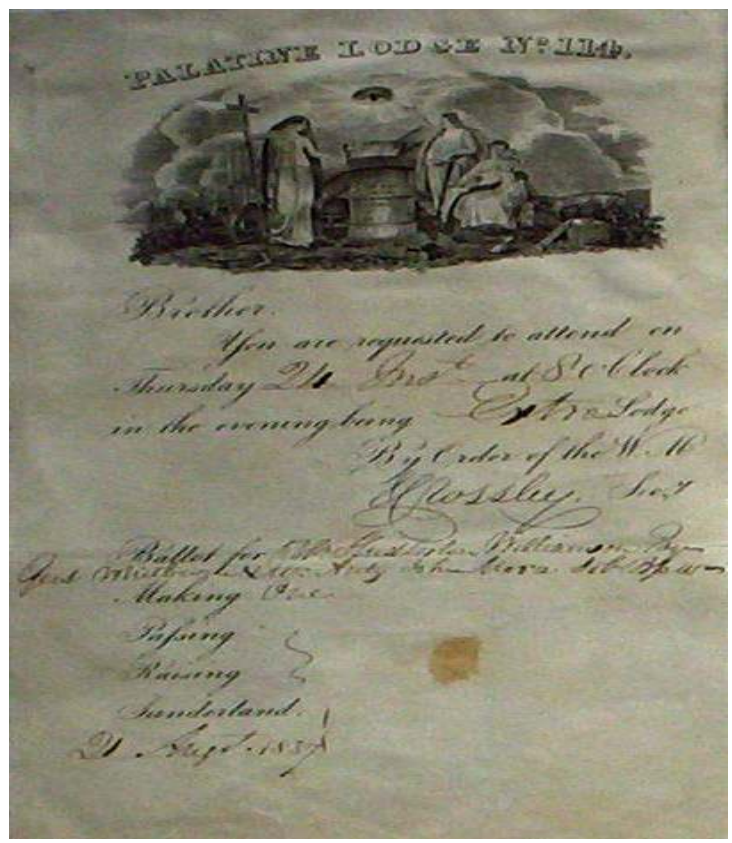 PALATINE LODGE Nº 114.
Brother.
You are requested to attend on
Thursday 24 Inst at 8 O'Clock
in the evening being Extra Lodge
By Order of the W. M
Crossley. Secy
Ballot for Williamson
John
Making One
Passing
Raising
Sunderland.
21 Augt. 1837